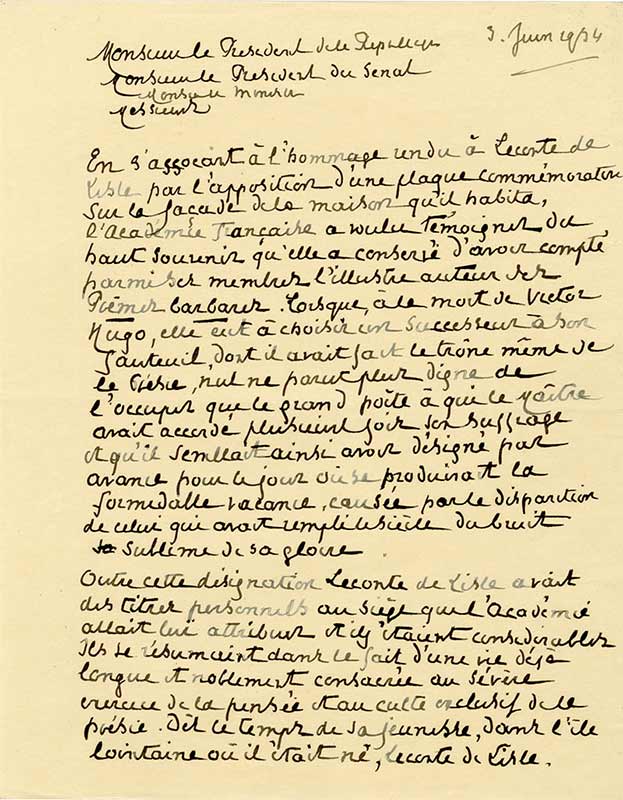 3. Juin 1934
Monsieur le President de la Republique
Monsieur le President du Senat
Monsieur le Ministre
Messieurs
En s'associant à l'hommage rendu à Leconte de
Lisle par l'apposition d'une plaque commémorative
sur la façade de la maison qu'il habita,
l'Académie française a voulu témoigner du
haut souvenir qu'elle a conservé d'avoir compté
parmi ses membres l'illustre auteur des
Poèmes barbares. Lorsque, à la mort de Victor
Hugo, elle eut à choisir un successeur à son
fauteuil, dont il avait fait le trône même de
la Poésie, nul ne parut plus digne de
l'occuper que le grand poète à qui le Maître
avait accordé plusieurs fois son suffrage
et qu'il semblait ainsi avoir désigné par
avance pour le jour où se produirait la
formidable vacance, causée par la disparition
de celui qui avait rempli le siècle du bruit
sublime de sa gloire.
Outre cette désignation Leconte de Lisle avait
des titres personnels au siège que l'Académie
allait lui attribuer et ils étaient considérables
Ils se résumaient dans le fait d'une vie déjà
longue et noblement consacrée au sévère
exercice de la pensée et au culte exclusif de la
poésie. Dès le temps de sa jeunesse, dans l'île
lointaine où il était né, Leconte de Lisle.